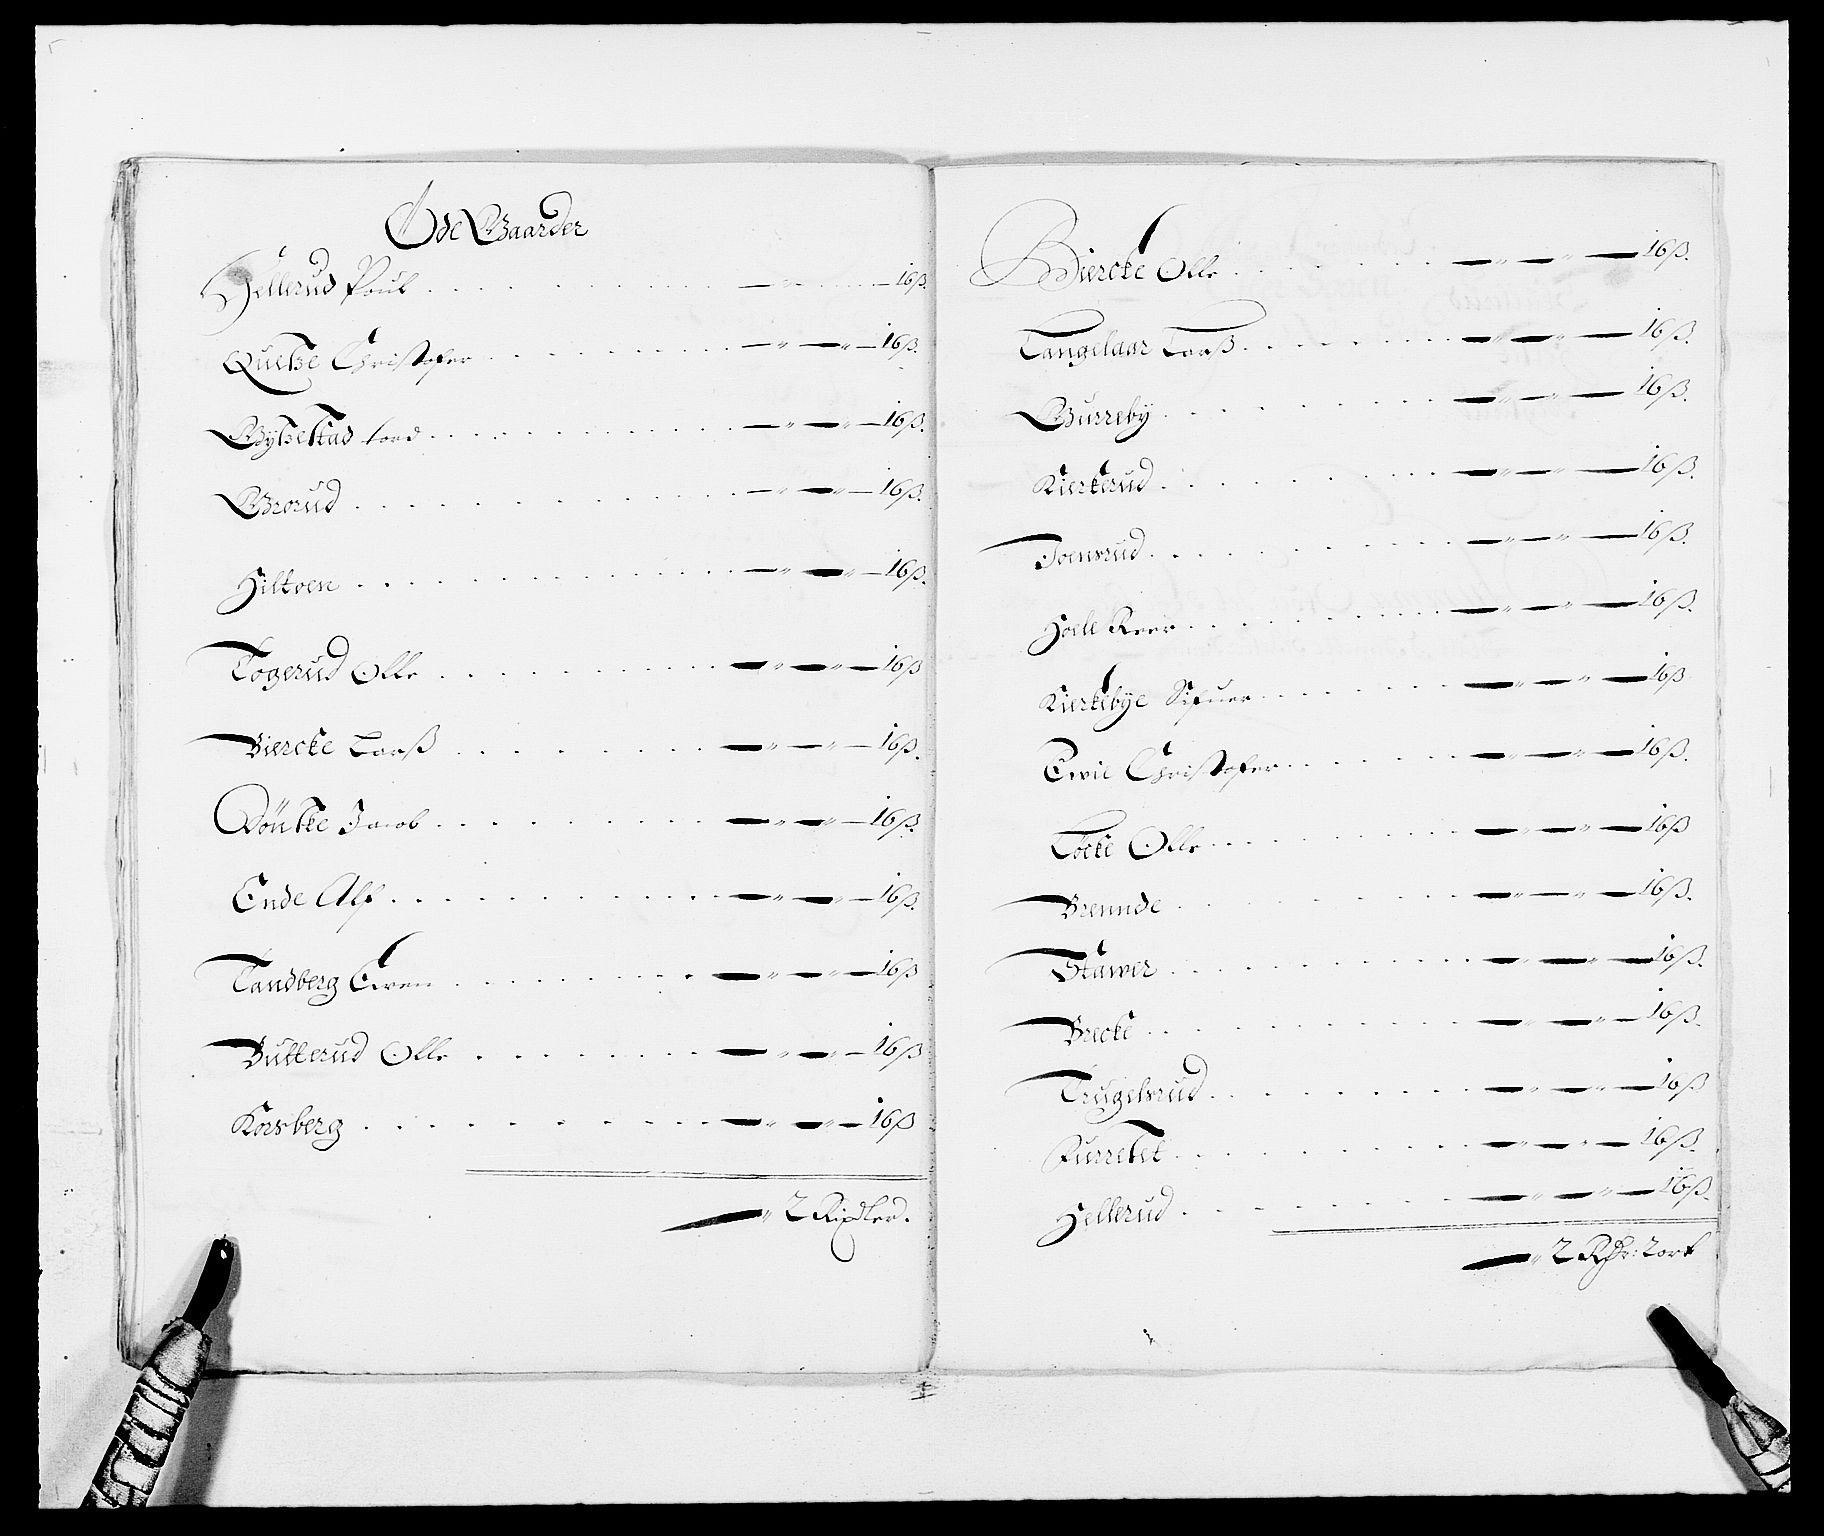 Öde Gaarder
Hellerud Poul . . . — " — 16ß.
Quelze Christofer . . . — " — " — 16ß.
Gylzestad lord . . . — " — " — 16ß.
Grorud . . . — " — " — 16ß.
Hiltoen . . . — " — " — 16ß.
Togerud Olle . . . — " — " — 16ß
Biercke Larß . . . — " — " — 16ß.
Jacob . . . — " — " — 16ß.
Ende Alf . . . — " — " — 16ß.
Tandberg Ewen . . . — " — " — 16ß
Butterud Olle . . . — " — " — 16ß
Korsberg . . . — " — " — 16ß
— " 2 Rixdler.
Biercke Olle . . . — " — " — 16ß.
Langelaar Larß . . . — " — " — 16ß.
Gurreby . . . — " — " — 16ß.
Kierkerud . . . — " — " — 16ß.
Toensrud . . . — " — " — 16ß.
Hoell Reer . . . — " — " — 16ß.
Kierkebye Sifuer . . . — " — " — 16ß
Christofer . . . — " — " — 16ß.
Locke Olle . . . — " — " — 16ß
Brennde . . . — " — " — 16ß.
Stawer . . . — " — " — 16ß.
Brecke . . . — " — " — 16ß.
Trugelsrud . . . — " — " — 16ß
Furretet . . . — " — " — 16ß.
Hellerud . . . — " — " — 16ß.
— " 2 Rdr: 2 ort